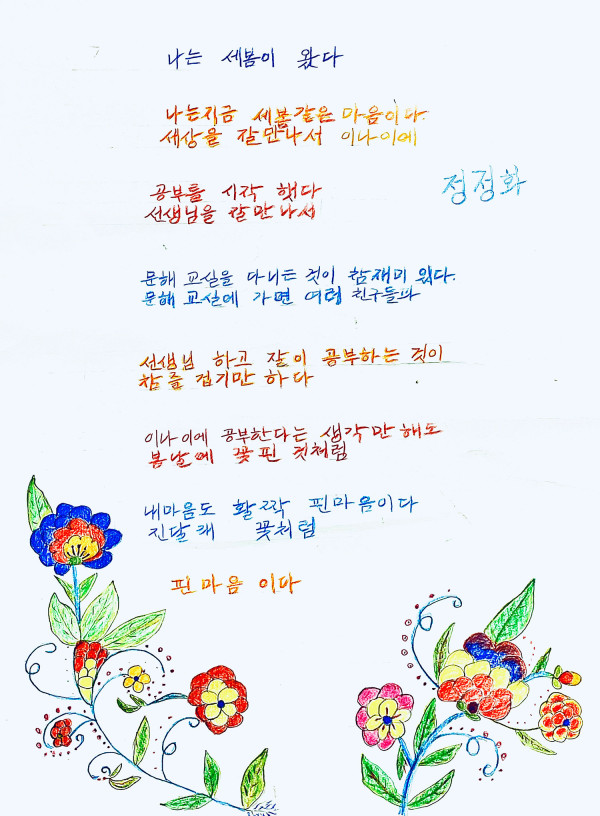 나는 세봄이 왔다
나는지금 세봄같은 마음이다.
세상을 잘만나서 이나이에
공부를 시작 했다
선생님을 잘만나서
정정화
문해 교실을 다니는 것이 참재미 있다.
문해 교실에 가면 여럿 친구들과
선생님 하고 잘이 공부하는 것이
참즐겁기만 하다
이나이에 공부한다는 생각만해도
봄날에 꽃핀 것처럼
내마음도 활짝 핀마음이다
진달래 꽃처럼
핀마음 이다